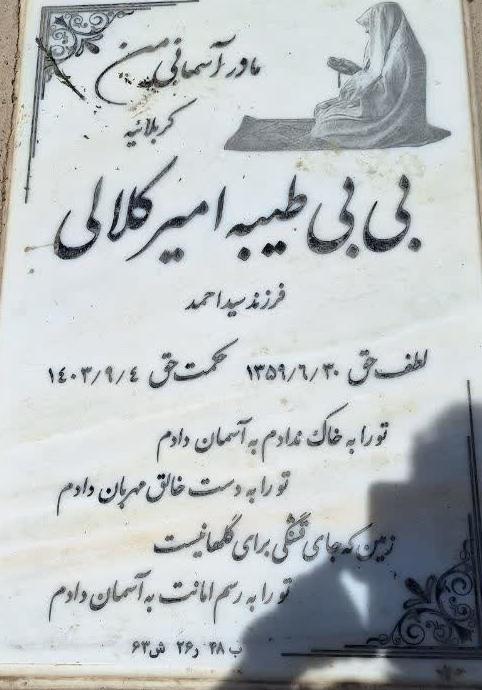 مادر آسمانی من
کربلائیه
بی بی طیبه امیر کلالی
فرزند سید احمد
لطف حق ۱۳۵۹/۶/۳۰ حکمت حق ۱٤۰۳/۹/٤
تو را به خاک ندادم به آسمان دادم
تو را به دست خالق مهربان دادم
زمین که جای قشنگی برای گلها نیست
تو را به رسم امانت به آسمان دادم
ب ۲۸ ر ۲۶ ش ۶۳